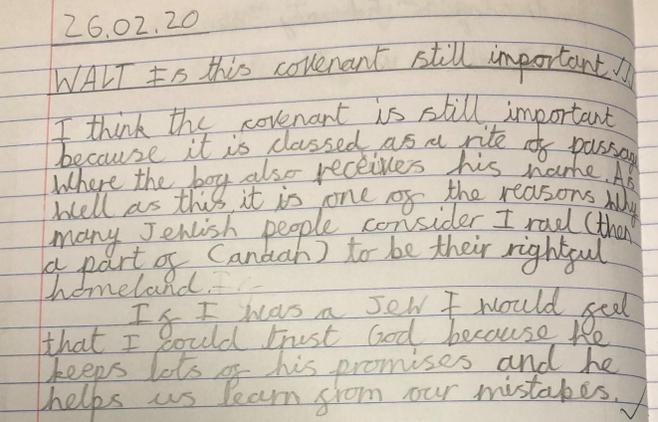 26.02.20
WALT Is this covenant still important
I think the covenant is still important
because it is classed as a rite of passag
Where the boy also receives his name As
well as this it is one of the reasons why
many Jewish people consider I rael (then
a part of Canaan) to be their rightful
homeland.
If I was a Jew I would feel
that I could trust God because he
keeps lots of his promises and he
helps us learn from our mistakes.